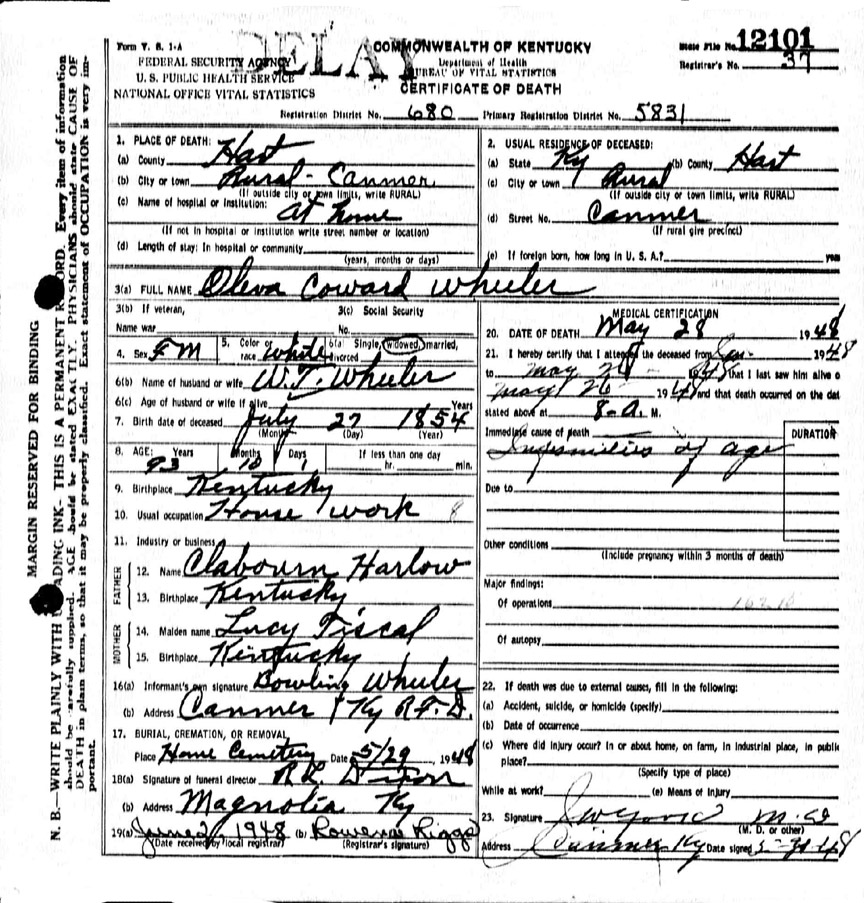 MARGIN RESERVED FOR BINDING
N. B.—WRITE PLAINLY WITH UNFADING INK—THIS IS A PERMANENT RECORD. Every item of information
should be carefully supplied. AGE should be stated EXACTLY. PHYSICIANS should state CAUSE OF
DEATH in plain terms, so that it may be properly classified. Exact statement of OCCUPATION is very im-
portant.
DELAY
Form V. S. 1-A
FEDERAL SECURITY AGENCY
U. S. PUBLIC HEALTH SERVICE
NATIONAL OFFICE VITAL STATISTICS
COMMONWEALTH OF KENTUCKY
Department of Health
BUREAU OF VITAL STATISTICS
CERTIFICATE OF DEATH
State File No. 12101
Registrar's No. 37
Registration District No. 680 Primary Registration District No. 5831
1. PLACE OF DEATH:
(a) County Hart
(b) City or town Rural - Canmer
(If outside city or town limits, write RURAL)
(c) Name of hospital or institution: at home
(If not in hospital or institution write street number or location)
(d) Length of stay: In hospital or community
(years, months or days)
2. USUAL RESIDENCE OF DECEASED:
(a) State Ky (b) County Hart
(c) City or town Rural
(If outside city or town limits, write RURAL)
(d) Street No. Canmer
(If rural give precinct)
(e) If foreign born, how long in U. S. A.? years
3(a) FULL NAME Oleva Coward Wheeler
3(b) If veteran,
Name war
3(c) Social Security
No.
4. Sex FM 5. Color or race white 6(a) Single, widowed, married, divorced
6(b) Name of husband or wife W. T. Wheeler
6(c) Age of husband or wife if alive Years
7. Birth date of deceased July 27 1854
(Month) (Day) (Year)
8. AGE: Years Months Days If less than one day
93 10 1 hr. min.
9. Birthplace Kentucky
10. Usual occupation House work 8
11. Industry or business
FATHER
12. Name Clabourn Harlow
13. Birthplace Kentucky
MOTHER
14. Maiden name Lucy Tiscal
15. Birthplace Kentucky
16(a) Informant's own signature Bowling Wheeler
(b) Address Canmer Ky R.F.D.
17. BURIAL, CREMATION, OR REMOVAL
Place Home Cemetery Date 5/29 1948
18(a) Signature of funeral director R.L. Dixon
(b) Address Magnolia Ky
19(a) June 2, 1948 (b) Rowena Riggs
(Date received by local registrar) (Registrar's signature)
MEDICAL CERTIFICATION
20. DATE OF DEATH May 28 1948
21. I hereby certify that I attended the deceased from Jan 1948
to May 28 1948 that I last saw him alive o
May 26 1948 and that death occurred on the dat
stated above at 8-a. M.
Immediate cause of death DURATION
Infirmities of age
Due to
Other conditions
(Include pregnancy within 3 months of death)
Major findings:
Of operations
Of autopsy
22. If death was due to external causes, fill in the following:
(a) Accident, suicide, or homicide (specify)
(b) Date of occurrence
(c) Where did injury occur? In or about home, on farm, in industrial place, in public
place?
(Specify type of place)
While at work? (e) Means of Injury
23. Signature M.D
(M. D. or other)
Address Canmer Ky Date signed 5-31-48